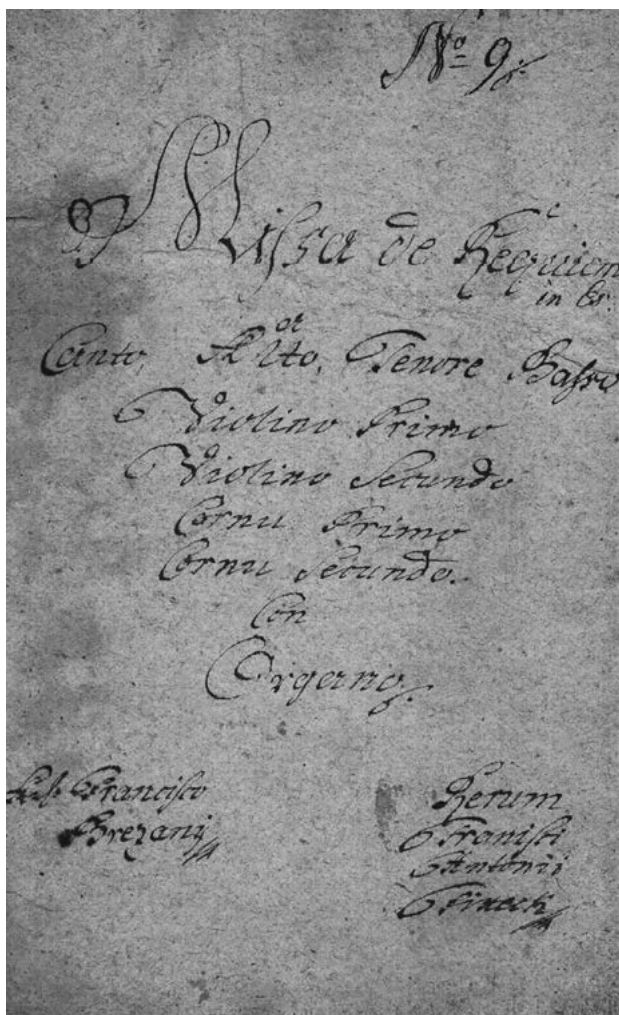 No 9
Missa de Requiem
in Es.
Canto, Alto, Tenore Basso
Violino Primo
Violino Secundo
Cornu Primo
Cornu Secundo.
Con
Organo
Francisco
Brezanÿ
Rerum
Antonii